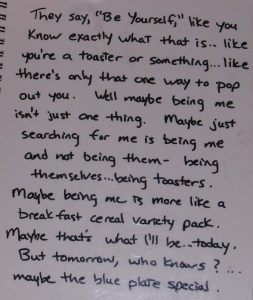 They say, "Be Yourself," like you
know exactly what that is.. like
you're a toaster or something...like
there's only that one way to pop
out you. Well maybe being me
isn't just one thing. Maybe just
searching for me is being me
and not being them- being
themselves...being toasters.
Maybe being me is more like a
breakfast cereal variety pack.
Maybe that's what I'll be..today.
But tomorrow, who knows?...
maybe the blue plate special.